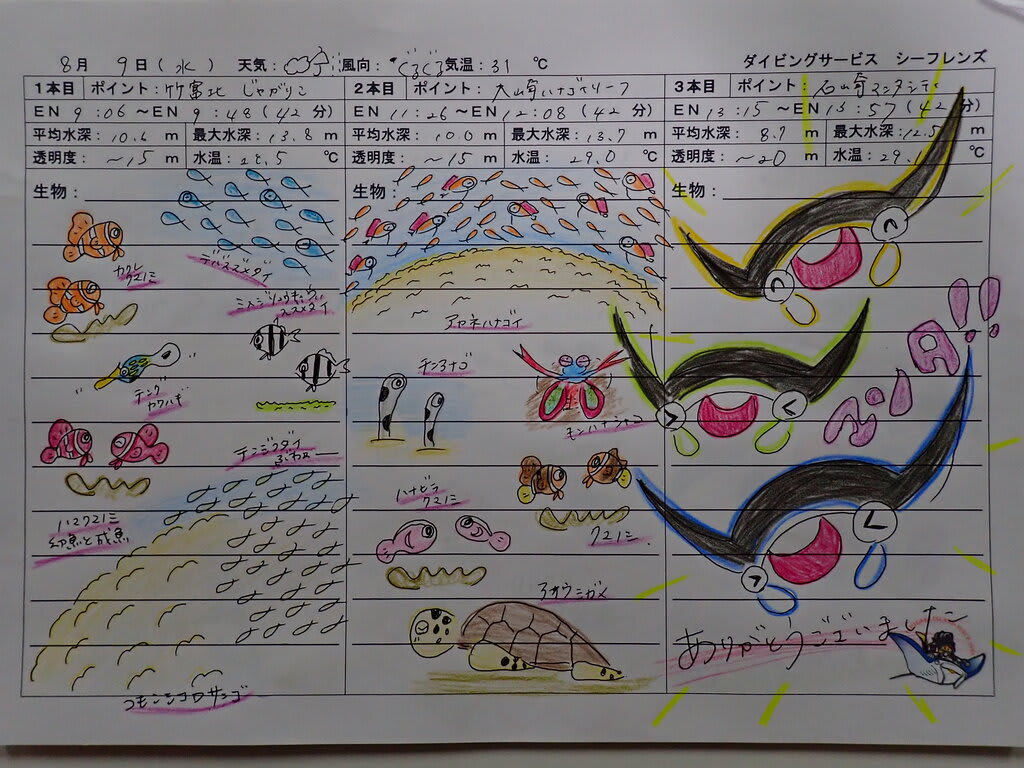 8月 9日(水) 天気: 風向:ぐるぐる 気温:31 ℃
ダイビングサービス シーフレンズ
1本目 ポイント:竹富北 じゃがりこ
EN 9:06～EN 9:48(42分)
平均水深:10.6 m 最大水深:13.8 m
透明度:～15 m 水温:28.5 ℃
生物:
デバスズメダイ
カクレクマノミ
ミスジリュウキュウスズメダイ
テングカワハギ
テンジクダイ
ハマクマノミ
幼魚と成魚
コモンシコロサンゴ
2本目 ポイント:大崎ハナゴイリーフ
EN 11:26～EN 12:08(42分)
平均水深:10.0 m 最大水深:13.7 m
透明度:～15 m 水温:29.0 ℃
生物:
アカネハナゴイ
チンアナゴ
モンハナシャコ
ハナビラクマノミ
クマノミ
アオウミガメ
3本目 ポイント:石崎マンタシティ
EN 13:15～EN 13:57(42分)
平均水深:8.7 m 最大水深:12.5 m
透明度:～20 m 水温:29.1 ℃
生物:
ありがとうございました